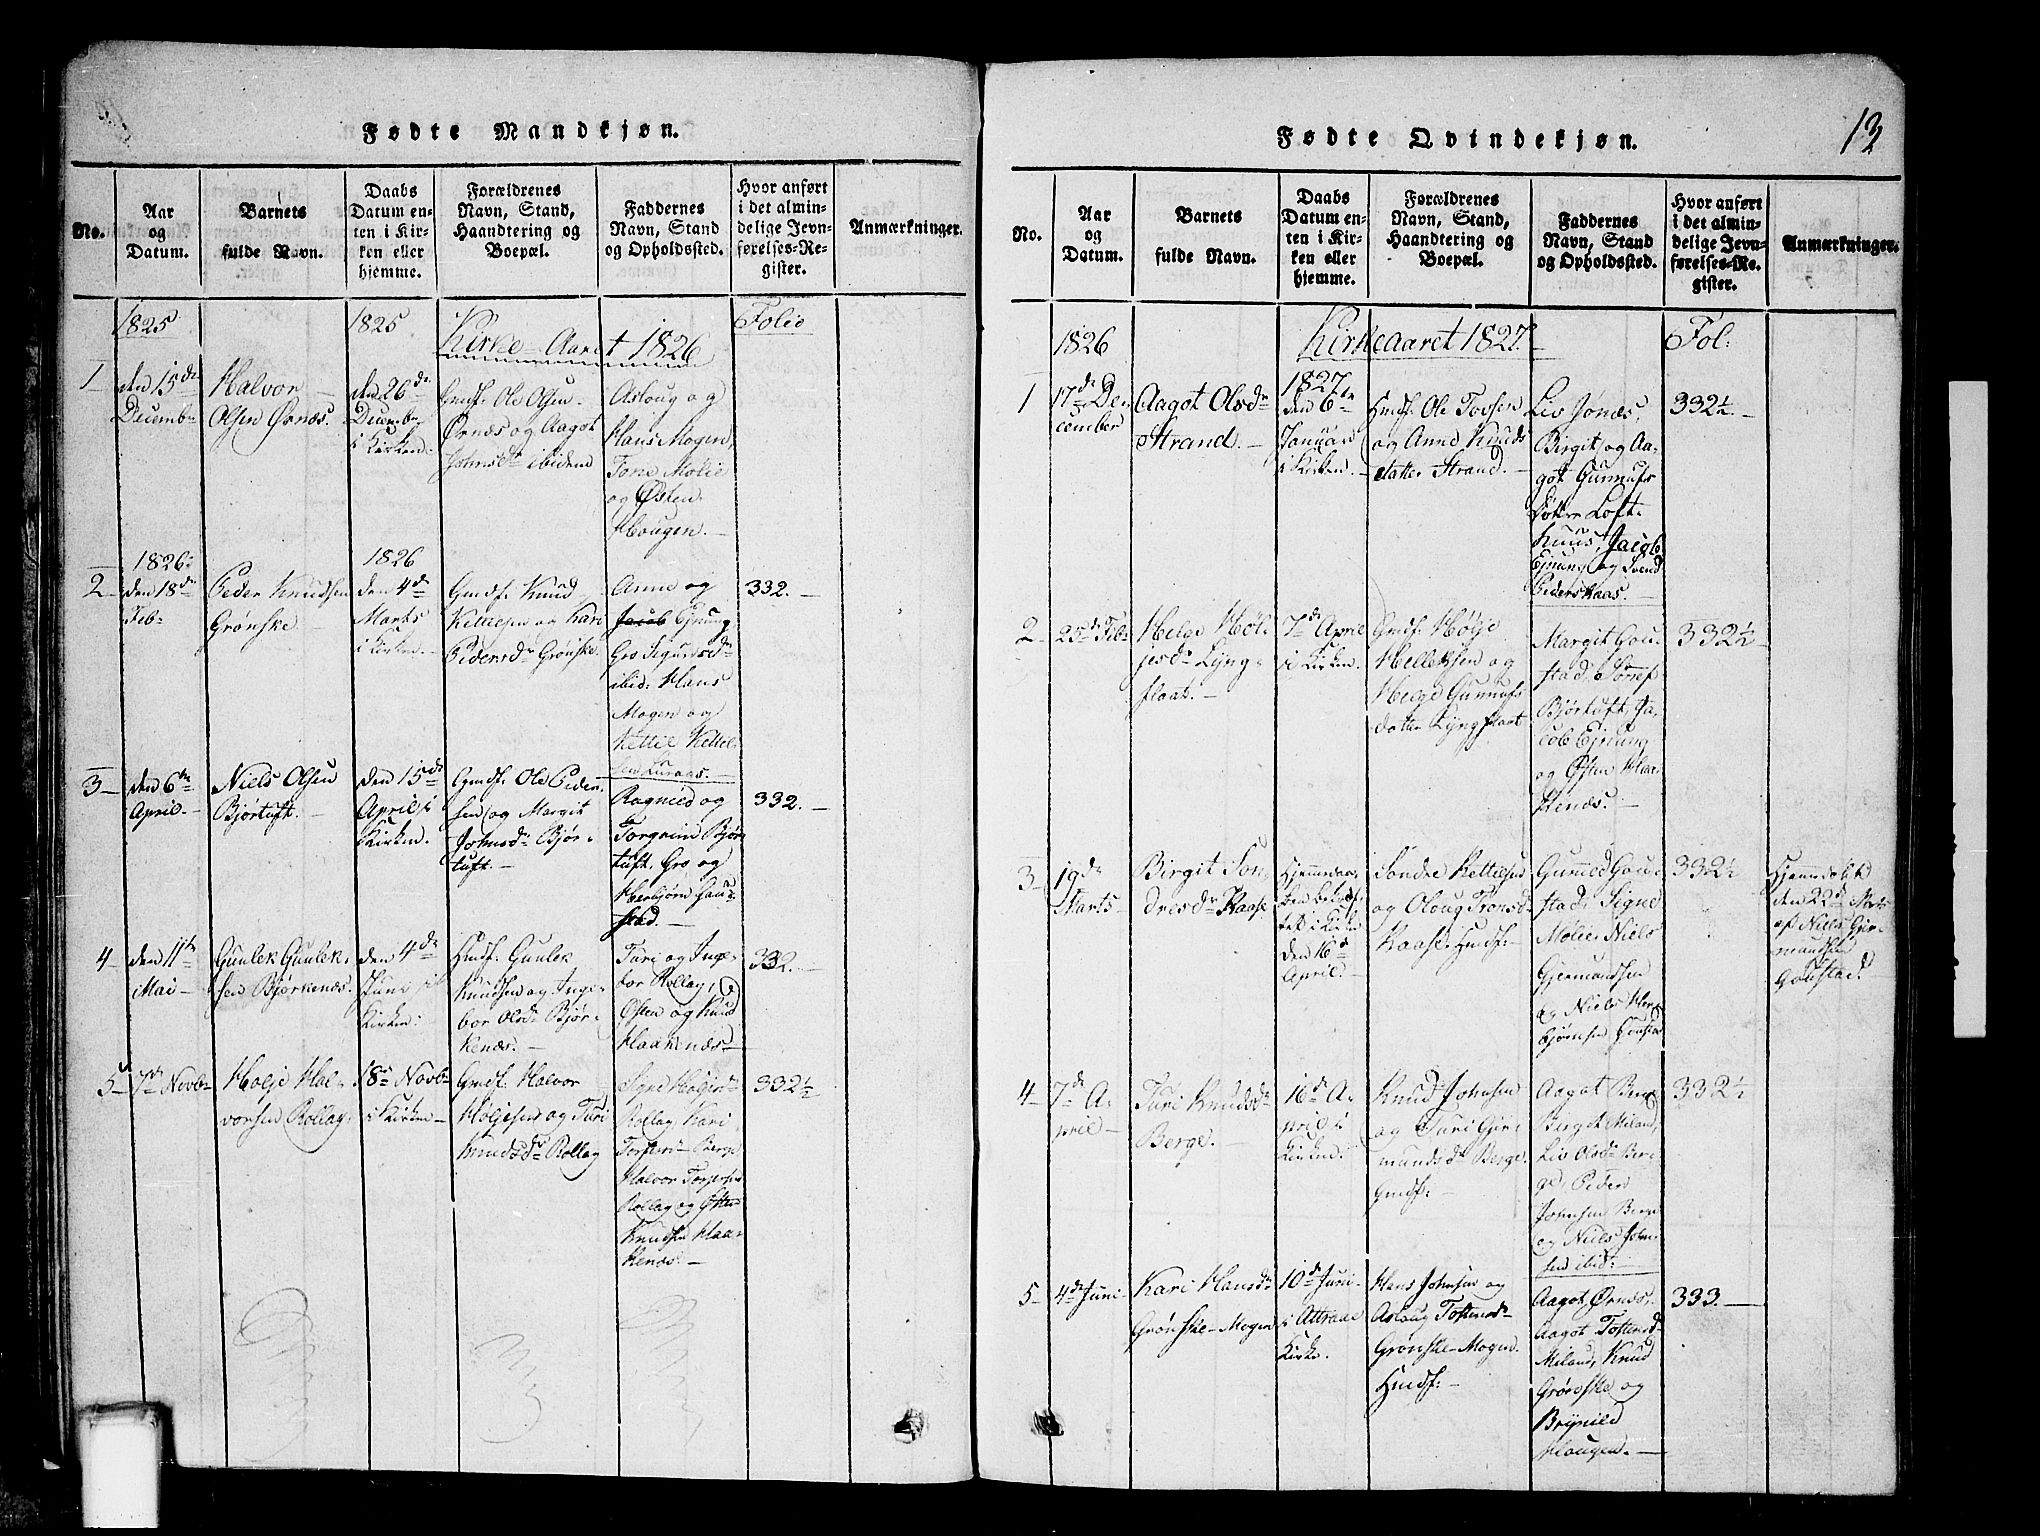 Fødte Mandkjøn.
No.
Aar
og
Datum.
Barnets
fulde Navn.
Daabs
Datum en-
ten i Kir-
ken eller
hjemme.
Forældrenes
Navn, Stand,
Haandtering og
Boepæl.
Faddernes
Navn, Stand
og Opholdssted.
Hvor anført
i det almin-
delige Jevn-
førelses-Re-
gister.
Anmærkninger.
Kirke-Aaret 1826
Folio
1
1825
den 15de
Decembr
Halvor
Olsen Ørnæs.
1825
den 26de
Decembr
i Kirken.
Gmdf. Ole Olsen
Ørnæs og Aagot
Johnsdr ibidem
Aslaug og
Hans Mogen,
Tone Molie
og Østen
Hougen.
2
1826
den 18de
Feb:
Peder Knudsen
Grønske
1826
den 4de
Marts
i Kirken.
Gmdf. Knud
Kittelsen og Kari
Pedersdr Grønske.
Anne og
Jacob Ejnung
Gro Sigurdsdr
ibid: Hans
Mogen og
Kettil Kettil-
sen Luraas.
332.
3
den 6te
April
Niels Olsen
Bjørtuft.
den 15de
April i
Kirken.
Gmdf. Ole Peder-
sen og Margit
Johnsdr Bjør-
tuft.
Ragnild og
Torgrim Bjør-
tuft, Gro og
Herbjørn Gau-
stad.
332.
4
den 11te
Mai
Gunlek Gunlek-
sen Bjørkenæs.
den 4de
Juni i
Kirken:
Hmdf. Gunlek
Knudsen og Inge-
bor Olsdr Bjør-
kenæs.
Turi og Inge-
bor Rollag,
Østen og Knud
Haakenæs
332.
5
7de Novbr
Holje Hal-
vorsen Rollag,
18de Novbr
i Kirken
Gmdf. Halvor
Høljesen og Turi
Knudsdr Rollag
Signe Høljesdr
Rollag, Kari
Torsteinsdr Berge
Halvor Torgersen
Rollag og Østen
Knudsen Haa-
kenæs.
332½
13
Fødte Qvindekjøn.
No.
Aar
og
Datum.
Barnets
fulde Navn.
Daabs
Datum en-
ten i Kir-
ken eller
hjemme.
Forældrenes
Navn, Stand,
Haandtering og
Boepæl.
Faddernes
Navn, Stand
og Opholdssted.
Hvor anført
i det almin-
delige Jevn-
førelses-Re-
gister.
Anmærkninger.
Kirkeaaret 1827.
Fol:
1
1826
17de De-
cember
Aagot Olsdr
Strand.
1827
den 6te
Januar
i Kirken.
Hmdf. Ole Tovsen
og Anne Knuds
datter Strand.
Liv Jønæs,
Birgit og Aa-
got Gunnufs
Døttre Loft-
huus, Jacob
Ejnung og Svend
Pedersen Haas.
332½.
2
25de Feb:
Helge Høl-
jesdr Lyng-
float.
7de April
i Kirken.
Gmdf. Hølje
Helleksen og
Helge Gunnufs
datter Lyngfloat
Margit Gou-
stad, Torref
Bjørtuft, Ja-
cob Ejnung
og Østen Haa-
kenæs.
332½
3
19de
Marts
Birgit Son-
dresdr Kaase
Hjemmedaa-
ben bekræf-
tet i Kirken
den 16de
April.
Sondre Kettilsen
og Oloug Tronsdr
Kaase. Hmdf:
Gunild Gou-
stad, Signe
Molie, Niels
Gjermundsen
og Niels Her-
bjørnsen Goustad
332½
Hjemmedøbt
den 22de Marts
af Niels Gjer-
mundsen
Goustad.
4
7de A-
pril
Turi Knudsdr
Berge.
16de A-
pril i
Kirken.
Knud Johnsen
og Turi Gjer-
mundsdr Berge.
Gmdf:
Aagot Berge
Bergit Miland,
Liv Olsdr Ber-
ge, Peder
Johnsen Berge
og Niels John-
sen ibid:
332½
5
4de Juni
Kari Hansdr
Grønske-Mogen
10de Juni
i Attraae
Kirke.
Hans Johnsen og
Aslaug Tostensdr
Grønske-Mogen.
Hmdf:
Aagot Ørnæs,
Aagot Tostensdr
Miland, Knud
Grønske og
Brynild
Hougen.
333.